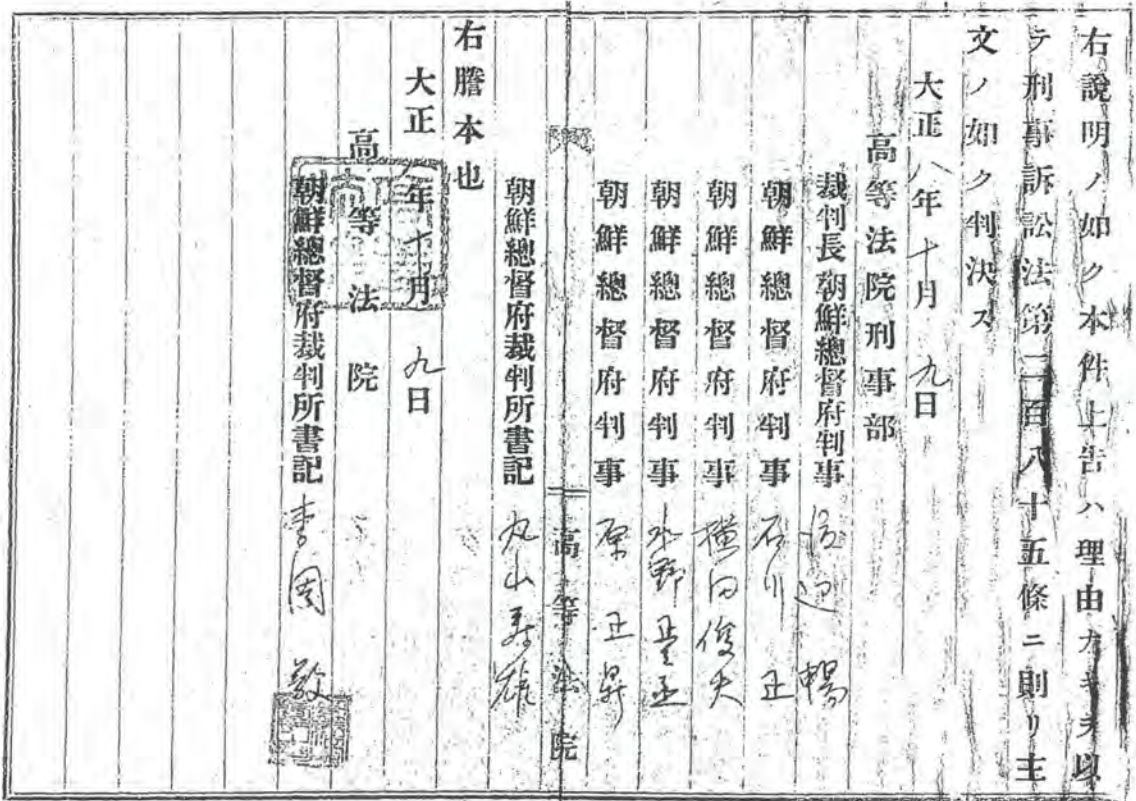 右說明ノ如ク本件上告ハ理由ナキヲ以
テ刑事訴訟法第二百八十五條ニ則リ主
文ノ如ク判決ス
大正八年十月九日
高等法院刑事部
裁判長朝鮮總督府判事 渡辺暢
朝鮮總督府判事 石川正
朝鮮總督府判事 橫田俊夫
朝鮮總督府判事 水野重
朝鮮總督府判事 原正鼎
高等法院
朝鮮總督府裁判所書記 丸山壽雄
右謄本也
大正八年十月九日
高等法院
朝鮮總督府裁判所書記 李圭敬